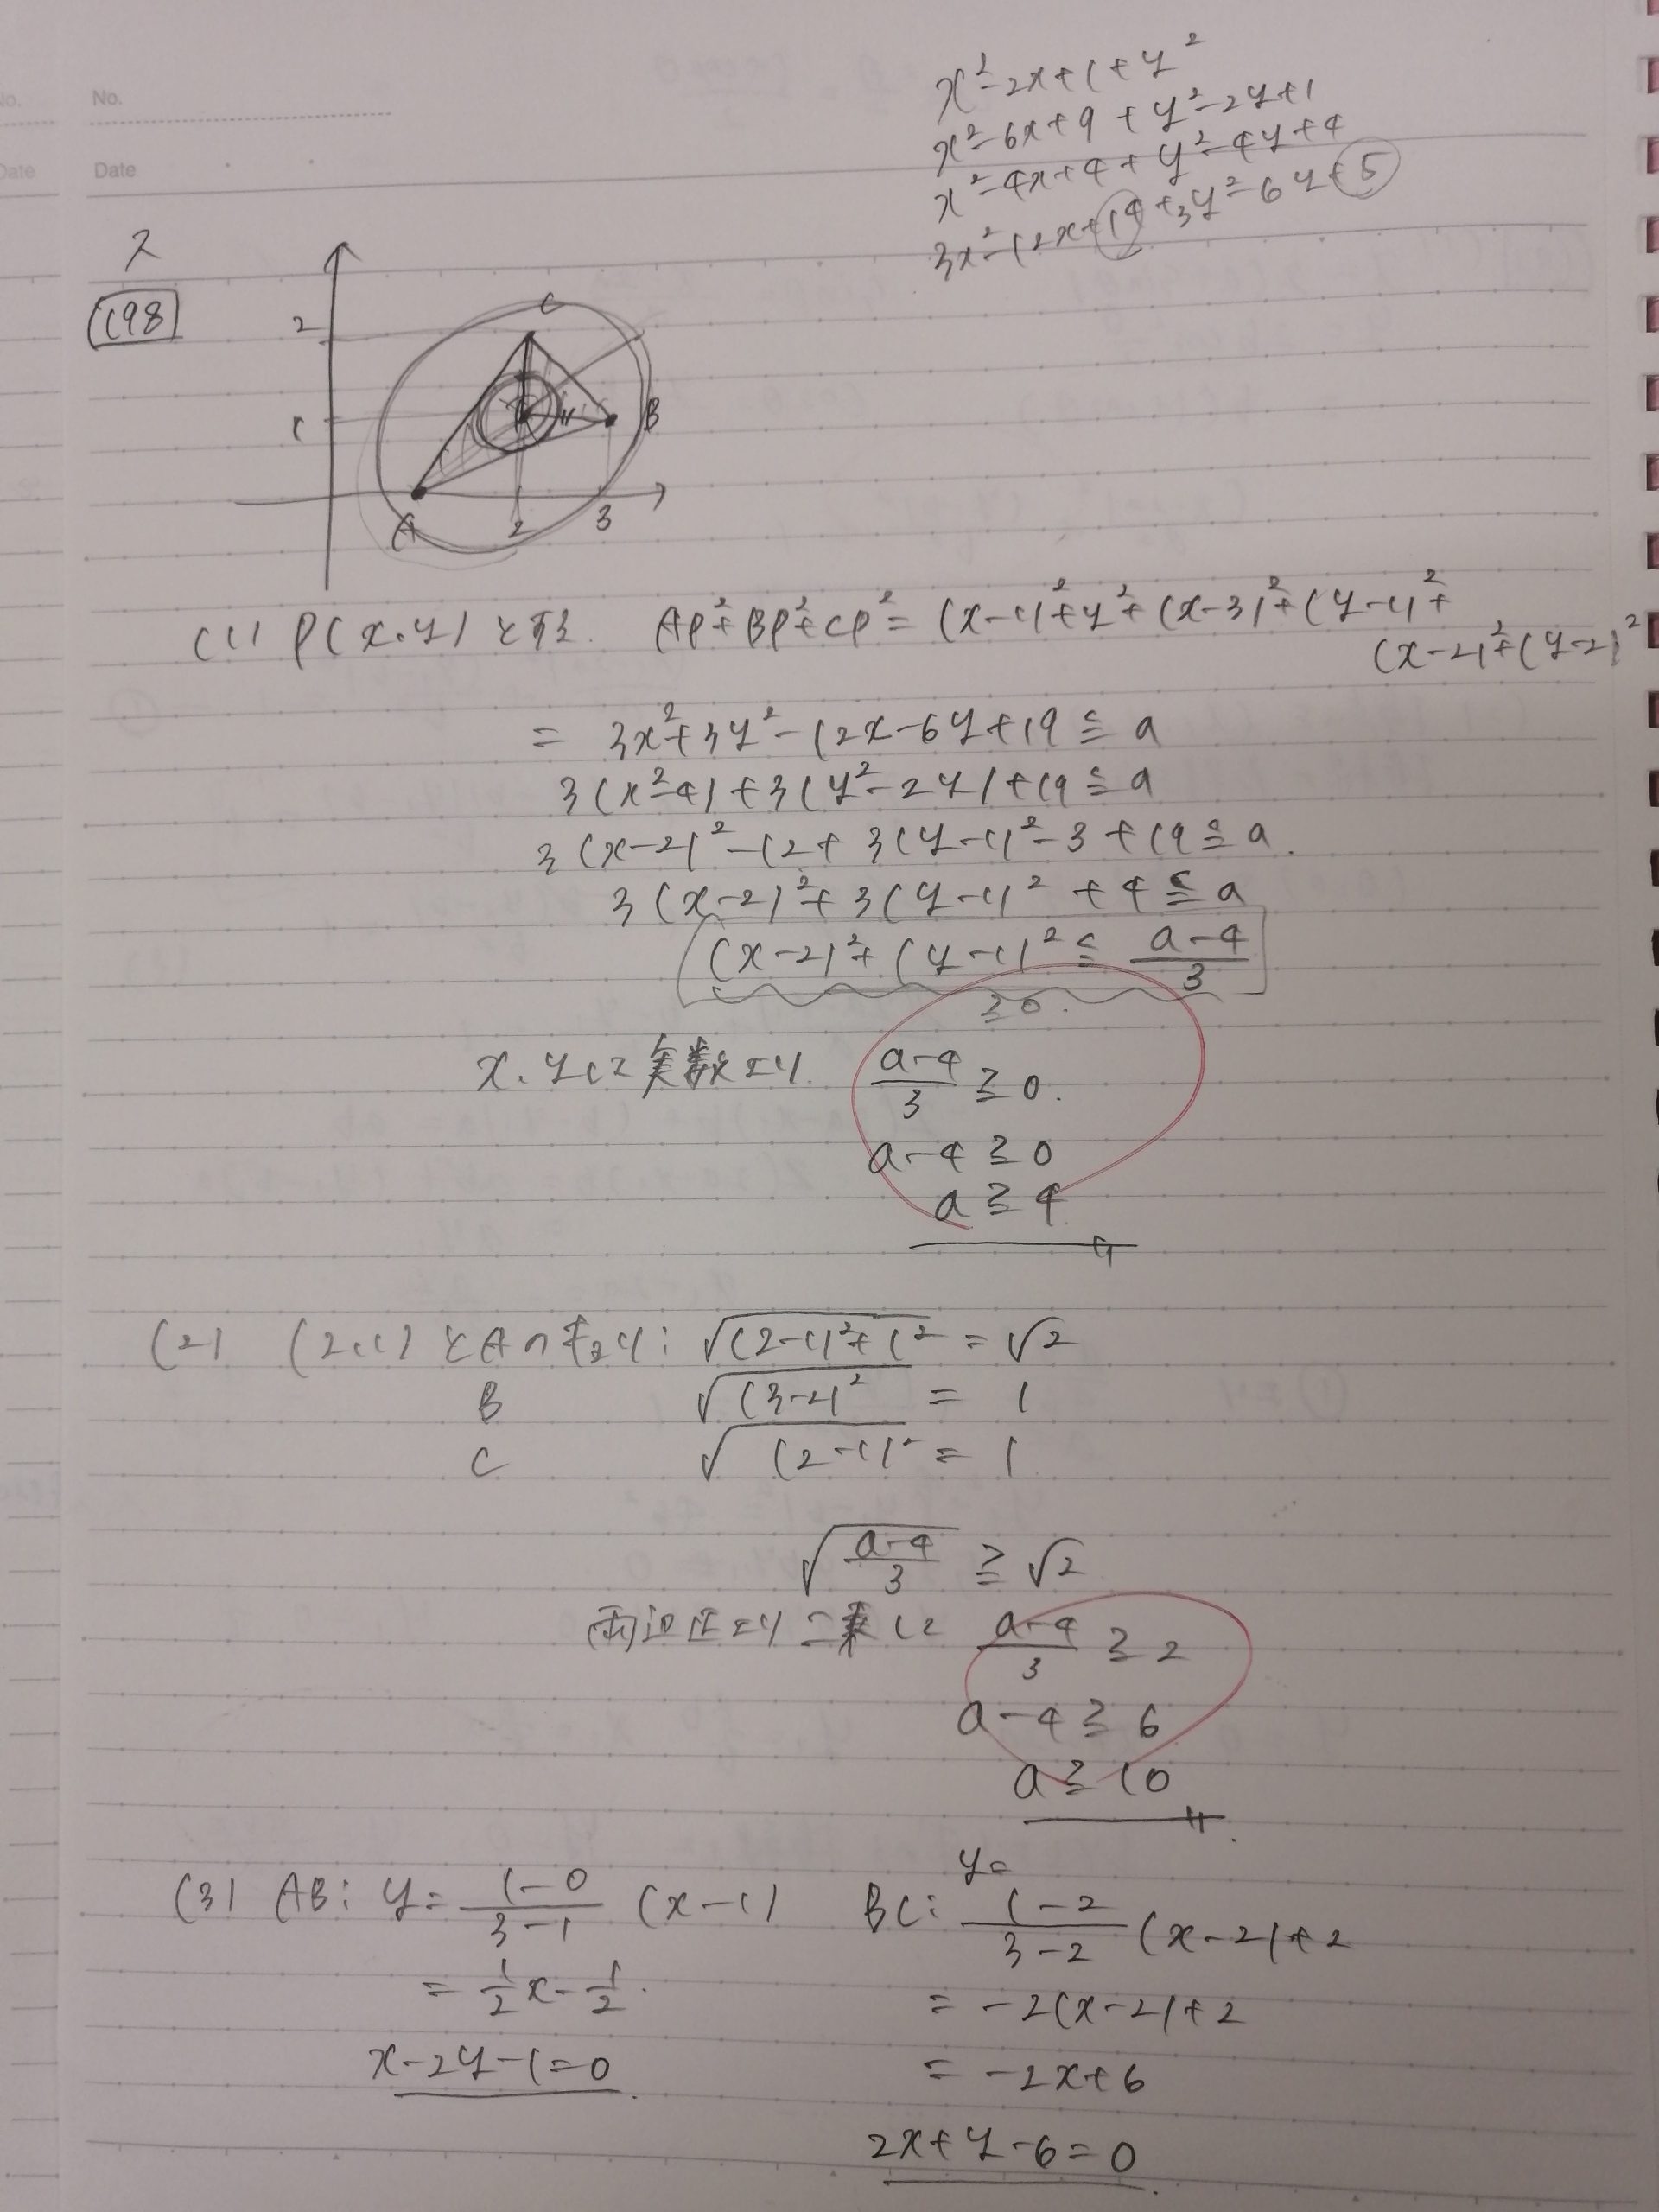 No.
Date
x²-2x+1+y²
x²-6x+9+y²-2y+1
x²-4x+4+y²-4y+4
3x²-12x+14+3y²-6y+5
198
2
1
C
B
A
2
3
(1) P(x,y)とする. AP²+BP²+CP²=(x-1)²+y²+(x-3)²+(y-1)²+
(x-2)²+(y-2)²
= 3x²+3y²-12x-6y+19≦a
3(x²-4)+3(y²-2y)+19≦a
3(x-2)²-12+3(y-1)²-3+19≦a.
3(x-2)²+3(y-1)²+4≦a
(x-2)²+(y-1)²≦\frac{a-4}{3}
≧0.
x,yは実数より \frac{a-4}{3}≧0.
a-4≧0
a≧4
(2) (2,1)とAのきょり: √((2-1)²+1²) = √2
B √((3-2)²) = 1
C √((2-1)²) = 1
√(\frac{a-4}{3}) ≧ √2
両辺正より二乗して \frac{a-4}{3}≧2
a-4≧6
a≧10
(3) AB: y=\frac{1-0}{3-1}(x-1) BC: y=\frac{1-2}{3-2}(x-2)+2
=\frac{1}{2}x-\frac{1}{2}. = -2(x-2)+2
x-2y-1=0 = -2x+6
2x+y-6=0